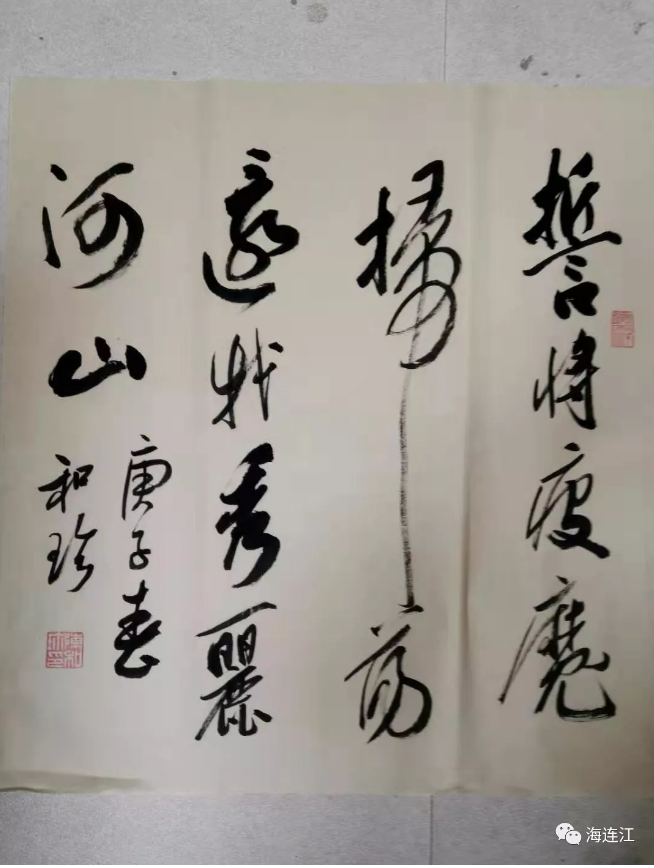 誓将疫魔
掃荡
還我秀麗
河山
庚子春
和珍
海连江